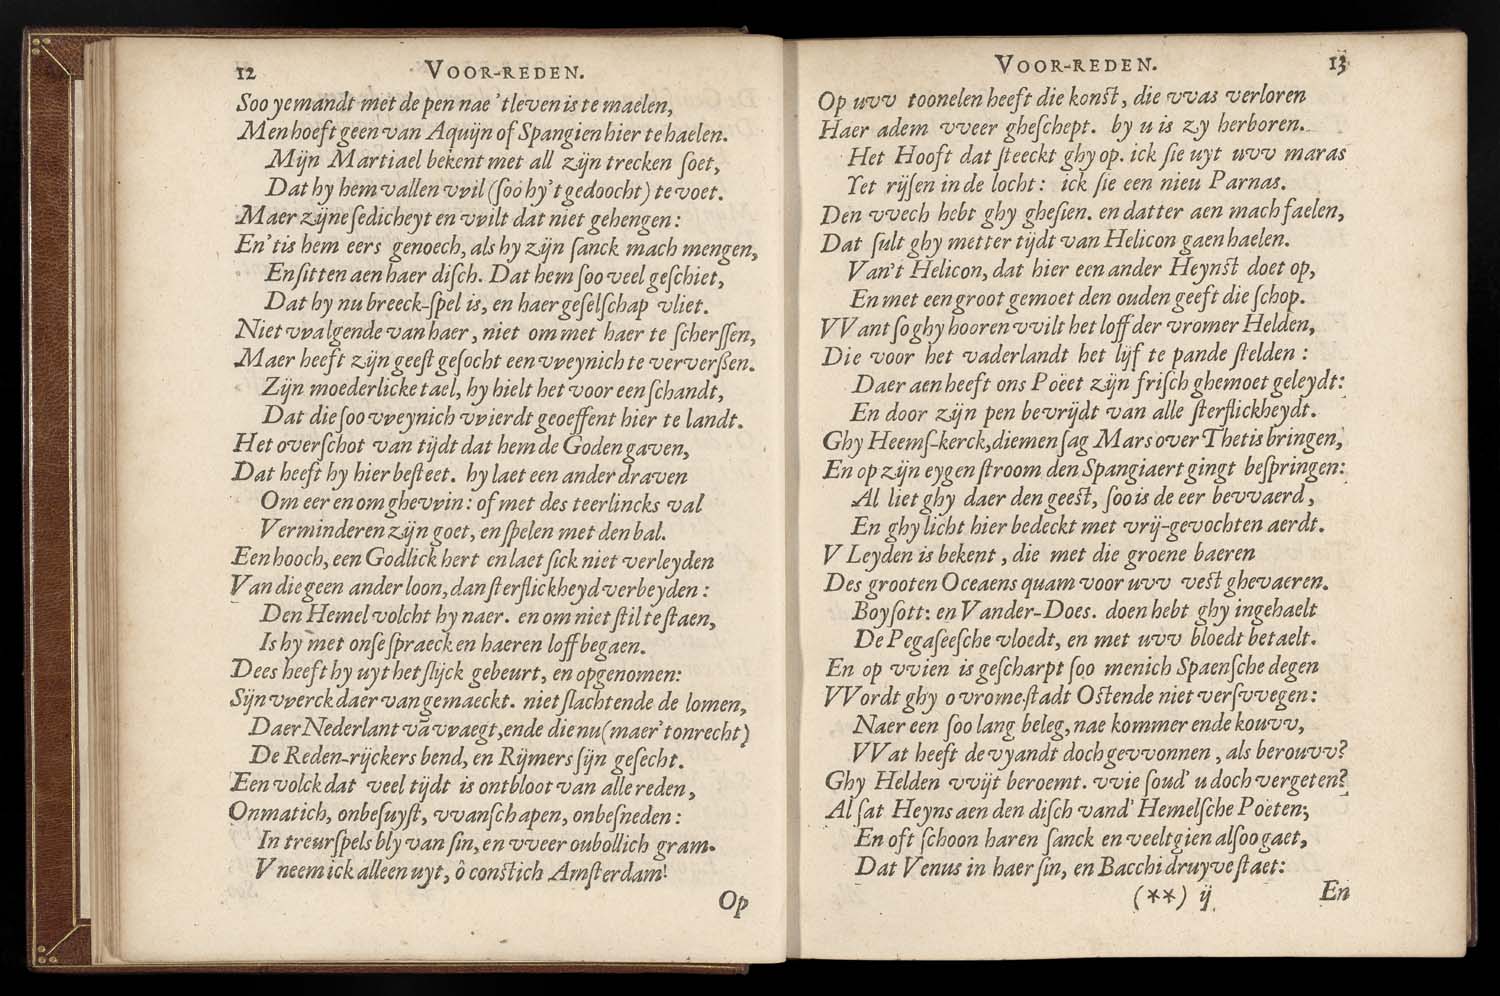 12 VOOR-REDEN.
Soo yemandt met de pen nae 't leven is te maelen,
Men hoeft geen van Aquijn of Spangien hier te haelen.
Mijn Martiael bekent met all zijn trecken ſoet,
Dat hy hem vallen vvil (ſoó hy't gedoocht) te voet.
Maer zijne ſedicheyt en vvilt dat niet gehengen:
En'tis hem eers genoech, als hy zijn ſanck mach mengen,
En ſitten aen haer diſch. Dat hem ſoo veel geſchiet,
Dat hy nu breeck-ſpel is, en haer geſelſchap vliet.
Niet vvalgende van haer, niet om met haer te ſcherſſen,
Maer heeft zijn geeſt geſocht een vveynich te ververßen.
Zijn moederlicke tael, hy hielt het voor een ſchandt,
Dat die ſoo vveynich vvierdt geoeffent hier te landt.
Het overſchot van tijdt dat hem de Goden gaven,
Dat heeft hy hier beſteet. hy laet een ander draven
Om eer en om ghevvin: of met des teerlincks val
Verminderen zijn goet, en ſpelen met den bal.
Een hooch, een Godlick hert en laet ſick niet verleyden
Van die geen ander loon, dan ſterflickheyd verbeyden:
Den Hemel volcht hy naer. en om niet ſtil te ſtaen,
Is hy met onſe ſpraeck en haeren loff begaen.
Dees heeft hy uyt het ſlijck gebeurt, en opgenomen:
Sijn vverck daer van gemaeckt. niet ſlachtende de lomen,
Daer Nederlant vā vvaegt, ende die nu (maer 't onrecht)
De Reden-rijckers bend, en Rijmers ſijn geſecht.
Een volck dat veel tijdt is ontbloot van alle reden,
Onmatich, onbeſuyſt, vvanſchapen, onbeſneden:
In treurſpels bly van ſin, en vveer oubollich gram.
V neem ick alleen uyt, ô conſtich Amſterdam!
Op
VOOR-REDEN. 13
Op uvv toonelen heeft die konſt, die vvas verloren
Haer adem vveer gheſchept. by u is zy herboren.
Het Hooft dat ſteeckt ghy op. ick ſie uyt uvv maras
Yet rijſen in de locht: ick ſie een nieu Parnas.
Den vvech hebt ghy gheſien. en datter aen mach faelen,
Dat ſult ghy metter tijdt van Helicon gaen haelen.
Van't Helicon, dat hier een ander Heynſt doet op,
En met een groot gemoet den ouden geeft die ſchop.
VVant ſo ghy hooren vvilt het loff der vromer Helden,
Die voor het vaderlandt het lijf te pande ſtelden:
Daer aen heeft ons Poëet zijn friſch ghemoet geleydt:
En door zijn pen bevrijdt van alle ſterflickheydt.
Ghy Heemſ-kerck, diemen ſag Mars over Thetis bringen,
En op zijn eygen ſtroom den Spangiaert gingt beſpringen:
Al liet ghy daer den geeſt, ſoo is de eer bevvaerd,
En ghy licht hier bedeckt met vrij-gevochten aerdt.
V Leyden is bekent, die met die groene baeren
Des grooten Oceaens quam voor uvv veſt ghevaeren.
Boyſott: en Vander-Does. doen hebt ghy ingehaelt
De Pegaſeeſche vloedt, en met uvv bloedt betaelt.
En op vvien is geſcharpt ſoo menich Spaenſche degen
VVordt ghy o vrome ſtadt Oſtende niet verſvvegen:
Naer een ſoo lang beleg, nae kommer ende kouvv,
VVat heeft de vyandt doch gevvonnen, als berouvv?
Ghy Helden vvijt beroemt. vvie ſoud' u doch vergeten?
Al ſat Heyns aen den diſch vand' Hemelſche Poëten;
En oft ſchoon haren ſanck en veeltgien alſoo gaet,
Dat Venus in haer ſin, en Bacchi druyve ſtaet:
(**) ij
En